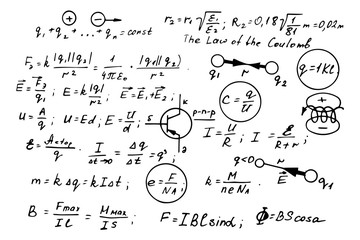 ⊕ ⊖→
q₁+q₂+...+qₙ=const
r₂=r₁√(E₁/E₂); R₂=0,18√(1/81) m=0,02m
The Law of the Coulomb
F₂=k |q₁||q₂|/r² = 1/(4πE₀) · |q₁||q₂|/r²
q₁ r q₂
q=1Kl
E⃗=F⃗₂/q₁; E=k|q|/r²; E⃗=E⃗₁+E⃗₂;
u=A/q; u=Ed; E=u/d;
к p-n-p
C=q/u
I=u/R; I=E/(R+r);
+ −
I/Δt→0 = Δq/Δt = q';
q<0 r E⃗ q₁
m=kΔq=kIΔt;
e=F/NA
k=M/(neNA).
B=Fmax/Il=Mmax/IS
F=IBlsind; Φ=BScosα